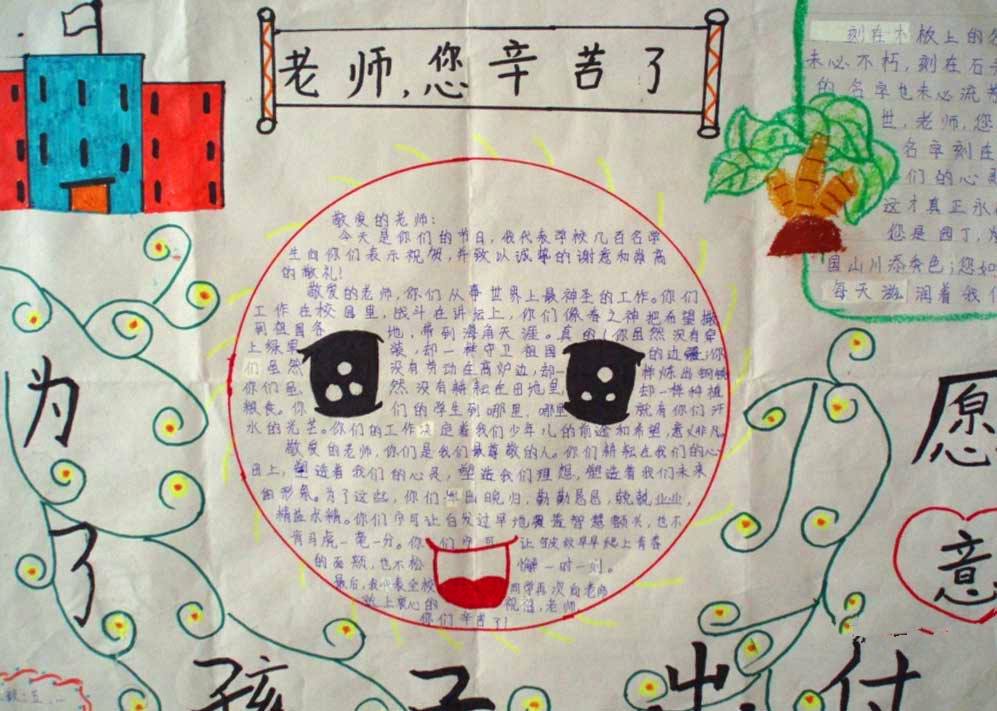 老师，您辛苦了
刻在木板上的名
未必不朽，刻在石头
的名字也未必流
世，老师，您
名字刻在
们的心
这才真正永
您是园丁，
国山川添秀色；您如
每天滋润着我们
敬爱的老师：
今天是你们的节日，我代表学校几百名学
生向你们表示祝贺，并致以诚挚的谢意和崇高
的敬礼！
敬爱的老师，你们从事世界上最神圣的工作。你们
工作在校园里，战斗在讲坛上，你们像春之神把希望撒
到祖国各地，带到海角天涯。真的！你虽然没有穿
上绿军装，却一样守卫祖国的边疆；你
们虽然没有劳动在高炉边，却一样炼出钢铁
你们虽然没有耕耘在田地里，却一样种植
粮食。你们的学生到哪里，哪里就有你们汗
水的光芒。你们的工作决定着我们少年儿的前途和希望，意义非凡。
敬爱的老师，你们是我们最尊敬的人。你们耕耘在我们的心
田上，塑造着我们的心灵，塑造我们理想，塑造着我们未来
的形象。为了这些，你们早出晚归，勤勤恳恳，兢兢业业，
精益求精。你们宁可让白发过早地覆盖智慧额头，也不
肯马虎一毫一分。你们宁可让皱纹早早爬上青春
的面颊，也不松懈一时一刻。
最后，我代表全校同学再次向老师
致上衷心的祝福，老师
你们辛苦了！
为
了
孩子出付
愿
意